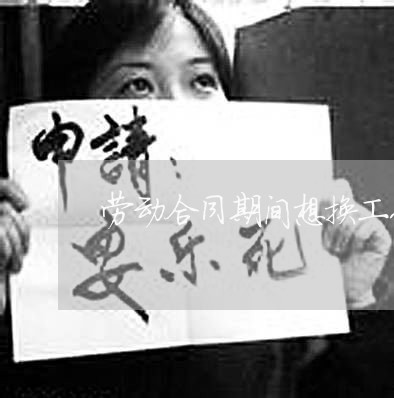 申請：
劳动合同期间想换工
安乐死